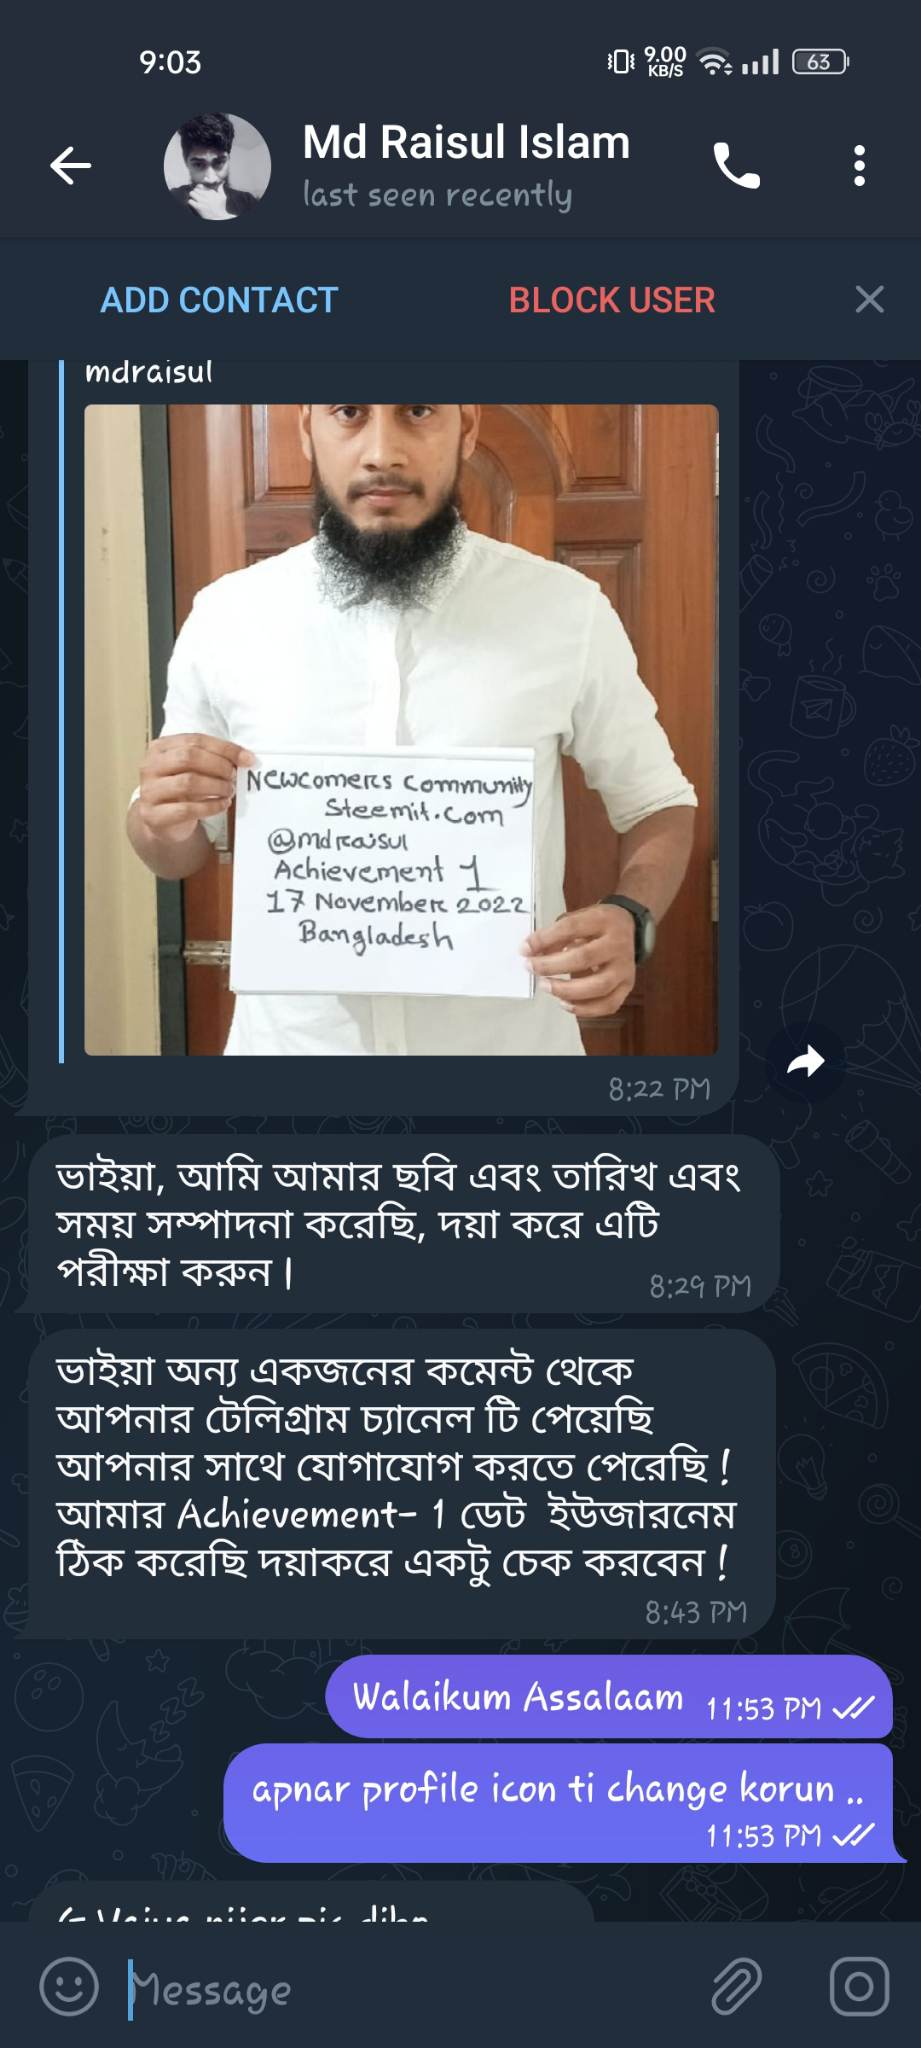 9:03
9.00
KB/S
63
Md Raisul Islam
last seen recently
ADD CONTACT
BLOCK USER
mdraisul
Newcomers Community
Steemit.com
@mdraisul
Achievement 1
17 November 2022
Bangladesh
8:22 PM
ভাইয়া, আমি আমার ছবি এবং তারিখ এবং
সময় সম্পাদনা করেছি, দয়া করে এটি
পরীক্ষা করুন।
8:29 PM
ভাইয়া অন্য একজনের কমেন্ট থেকে
আপনার টেলিগ্রাম চ্যানেল টি পেয়েছি
আপনার সাথে যোগাযোগ করতে পেরেছি !
আমার Achievement- 1 ডেট ইউজারনেম
ঠিক করেছি দয়াকরে একটু চেক করবেন !
8:43 PM
Walaikum Assalaam 11:53 PM
apnar profile icon ti change korun ..
11:53 PM
Message